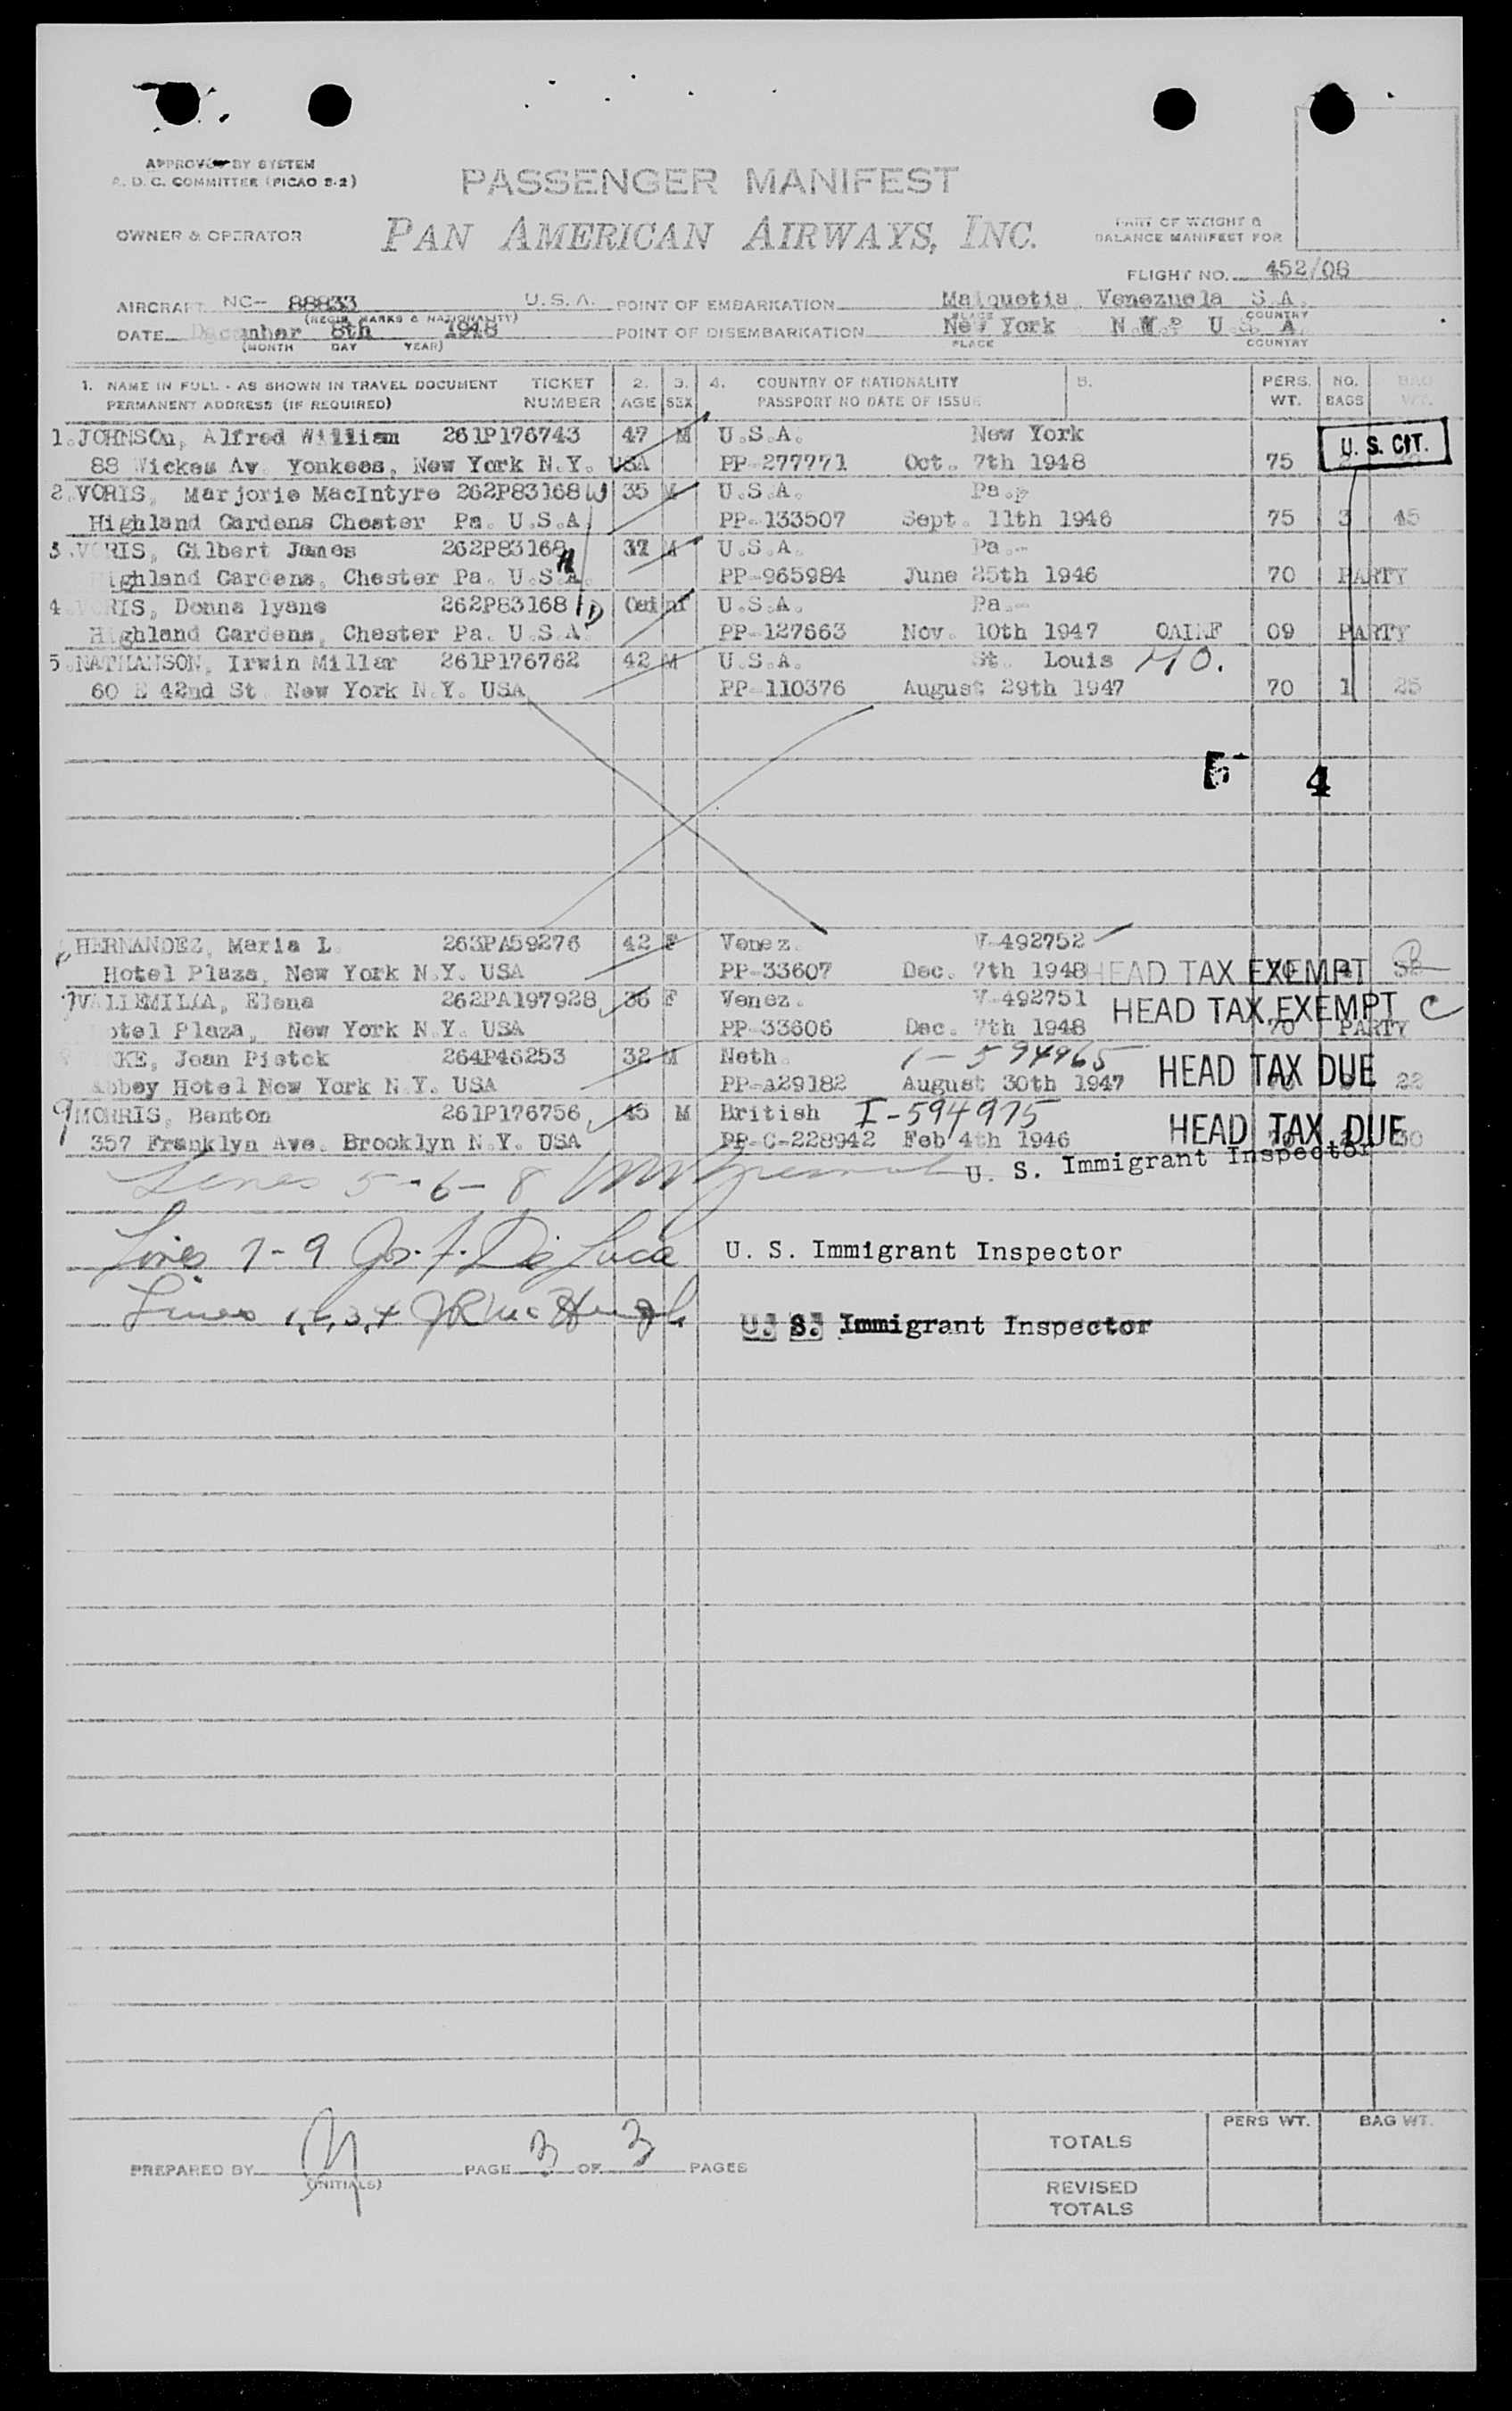 APPROVED BY SYSTEM
R. D. C. COMMITTEE (PICAO S-2)
PASSENGER MANIFEST
OWNER & OPERATOR
PAN AMERICAN AIRWAYS, INC.
PART OF WEIGHT &
BALANCE MANIFEST FOR
FLIGHT NO. 452/08
AIRCRAFT NC- 88833 U.S.A. POINT OF EMBARKATION Maiquetia Venezuela S.A.
(REGIS. MARKS & NATIONALITY) PLACE COUNTRY
DATE December 8th 1948 POINT OF DISEMBARKATION New York N.Y. U S A.
(MONTH DAY YEAR) PLACE COUNTRY
1. NAME IN FULL - AS SHOWN IN TRAVEL DOCUMENT TICKET 2. 3. 4. COUNTRY OF NATIONALITY 5. PERS. NO. BAG
PERMANENT ADDRESS (IF REQUIRED) NUMBER AGE SEX PASSPORT NO DATE OF ISSUE WT. BAGS WT.
1.JOHNSOn, Alfred William 261P176743 47 M U.S.A. New York
88 Wickes Av. Yonkees, New York N.Y. USA PP-277771 Oct. 7th 1948 75 U. S. CIT.
2.VORIS, Marjorie MacIntyre 262P83168 W 35 U.S.A. Pa.
Highland Gardens Chester Pa. U.S.A. PP-133507 Sept. 11th 1946 75 3 45
3.VORIS, Gilbert James 262P83168 H 37 M U.S.A. Pa.-
Highland Gardens, Chester Pa. U.S.A. PP-965984 June 25th 1946 70 PARTY
4 VORIS, Donna lyane 262P83168 D U.S.A. Pa.-
Highland Gardens, Chester Pa. U.S.A. PP-127663 Nov. 10th 1947 09 PARTY
5.NATHANSON, Irwin Miller 261P176762 42 M U.S.A. St. Louis MO.
60 E 42nd St. New York N.Y. USA PP-110376 August 29th 1947 70 1 25
5 4
HERNANDEZ, Maria L. 263PA59276 42 F Venez. V-492752
Hotel Plaza, New York N.Y. USA PP-33607 Dec. 7th 1948 HEAD TAX EXEMPT
7 Elena 262PA197928 36 F Venez. V-492751
Hotel Plaza, New York N.Y. USA PP-33606 Dec. 7th 1948 HEAD TAX EXEMPT C 70 PARTY
Jean 264P46253 32 M Neth. I-594965
Abbey Hotel New York N.Y. USA PP-a29182 August 30th 1947 HEAD TAX DUE 22
9 MORRIS, Banton 261P176756 45 M British I-594975
357 Franklyn Ave. Brooklyn N.Y. USA PP-C-228942 Feb 4th 1946 HEAD TAX DUE
Lines 5-6-8 U. S. Immigrant Inspector
Lines 7-9 Jos. F. De Luca U. S. Immigrant Inspector
Lines 1,2,3,4 J R McHugh U. S. Immigrant Inspector
PERS WT. BAG WT.
TOTALS
PREPARED BY (INITIALS) PAGE 3 OF 3 PAGES
REVISED
TOTALS